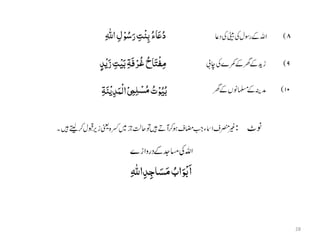 (۸ اللہ کے رسول کی بیٹی کی دعا
دُعَاءُ بِنْتِ رَسُوْلِ اللهِ
(۹ زید کے گھر کے کمرے کی چابی
مِفْتَاحُ غُرْفَةِ بَيْتِ زَيْدٍ
(۱۰ مدینے کے مسلمانوں کے گھر
بُيُوْتُ مُسْلِمِى الْمَدِيْنَةِ
نوٹ : غیر منصرف اسماء جب مضاف ہو کر آتے ہیں تو حالت جر میں کسرہ یعنی زیر قبول کر لیتے ہیں۔
اللہ کی مساجد کے دروازے
اَبْوَابُ مَسَاجِدِ اللهِ
28